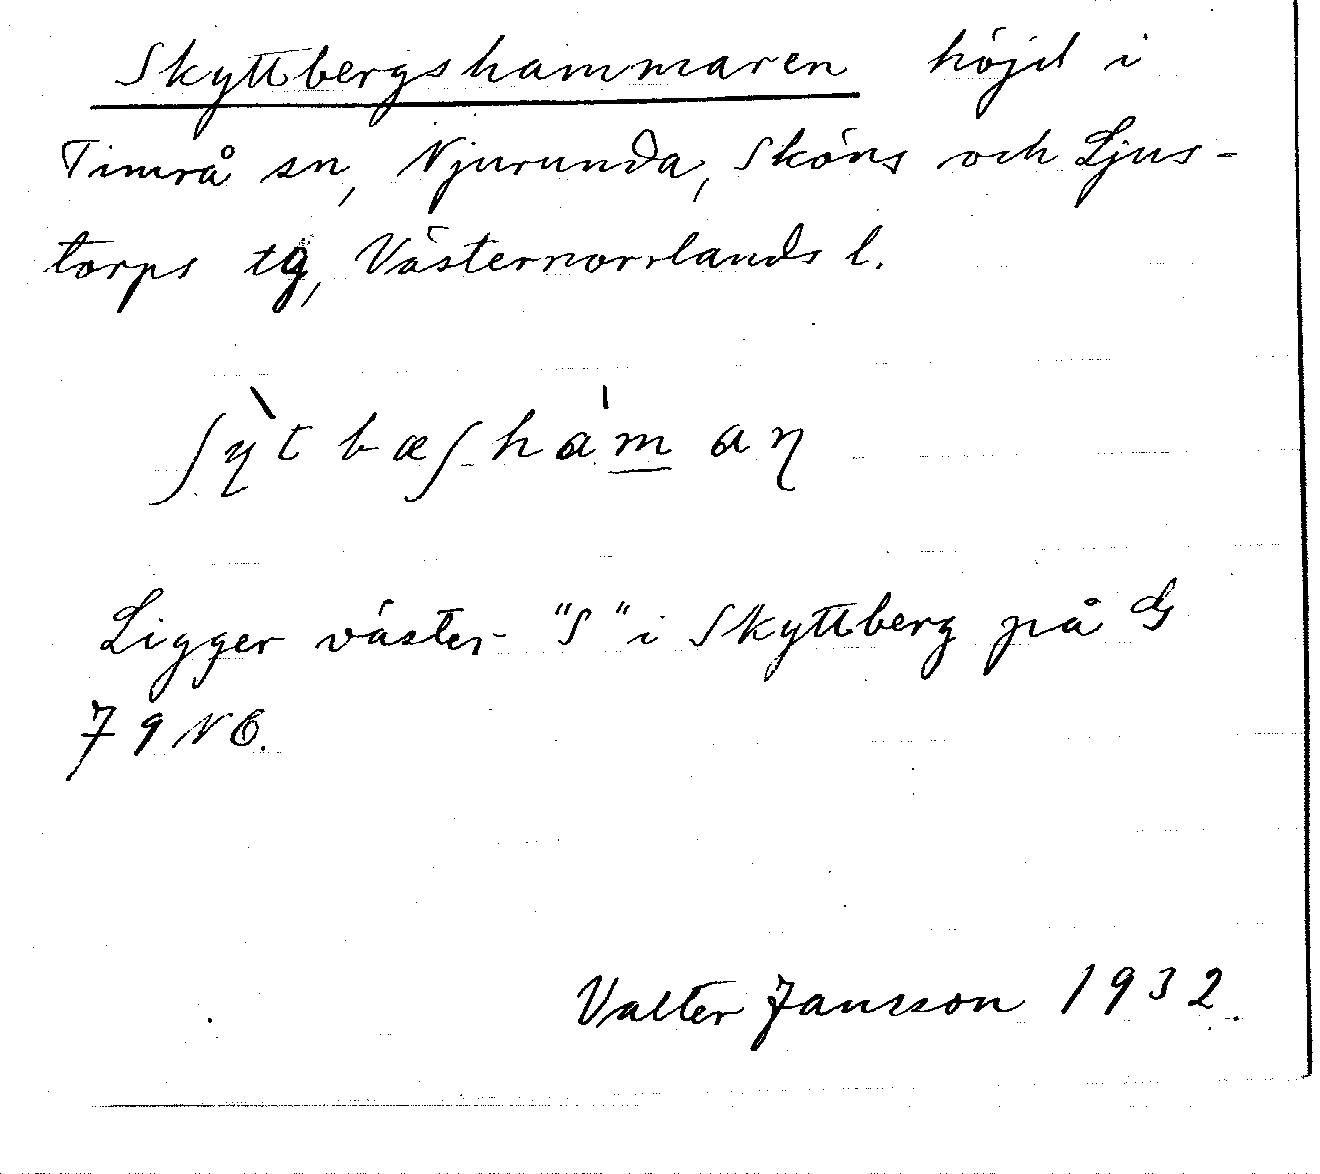 Skyttbergshammaren höjd i
Timrå sn, Njurunda, Sköns och Ljus-
torps tg, Västernorrlands l.
ʃỳtbæʃhàmaɳ
Ligger väster "S" i Skyttberg på
79 NO.
Valter Jansson 1932.